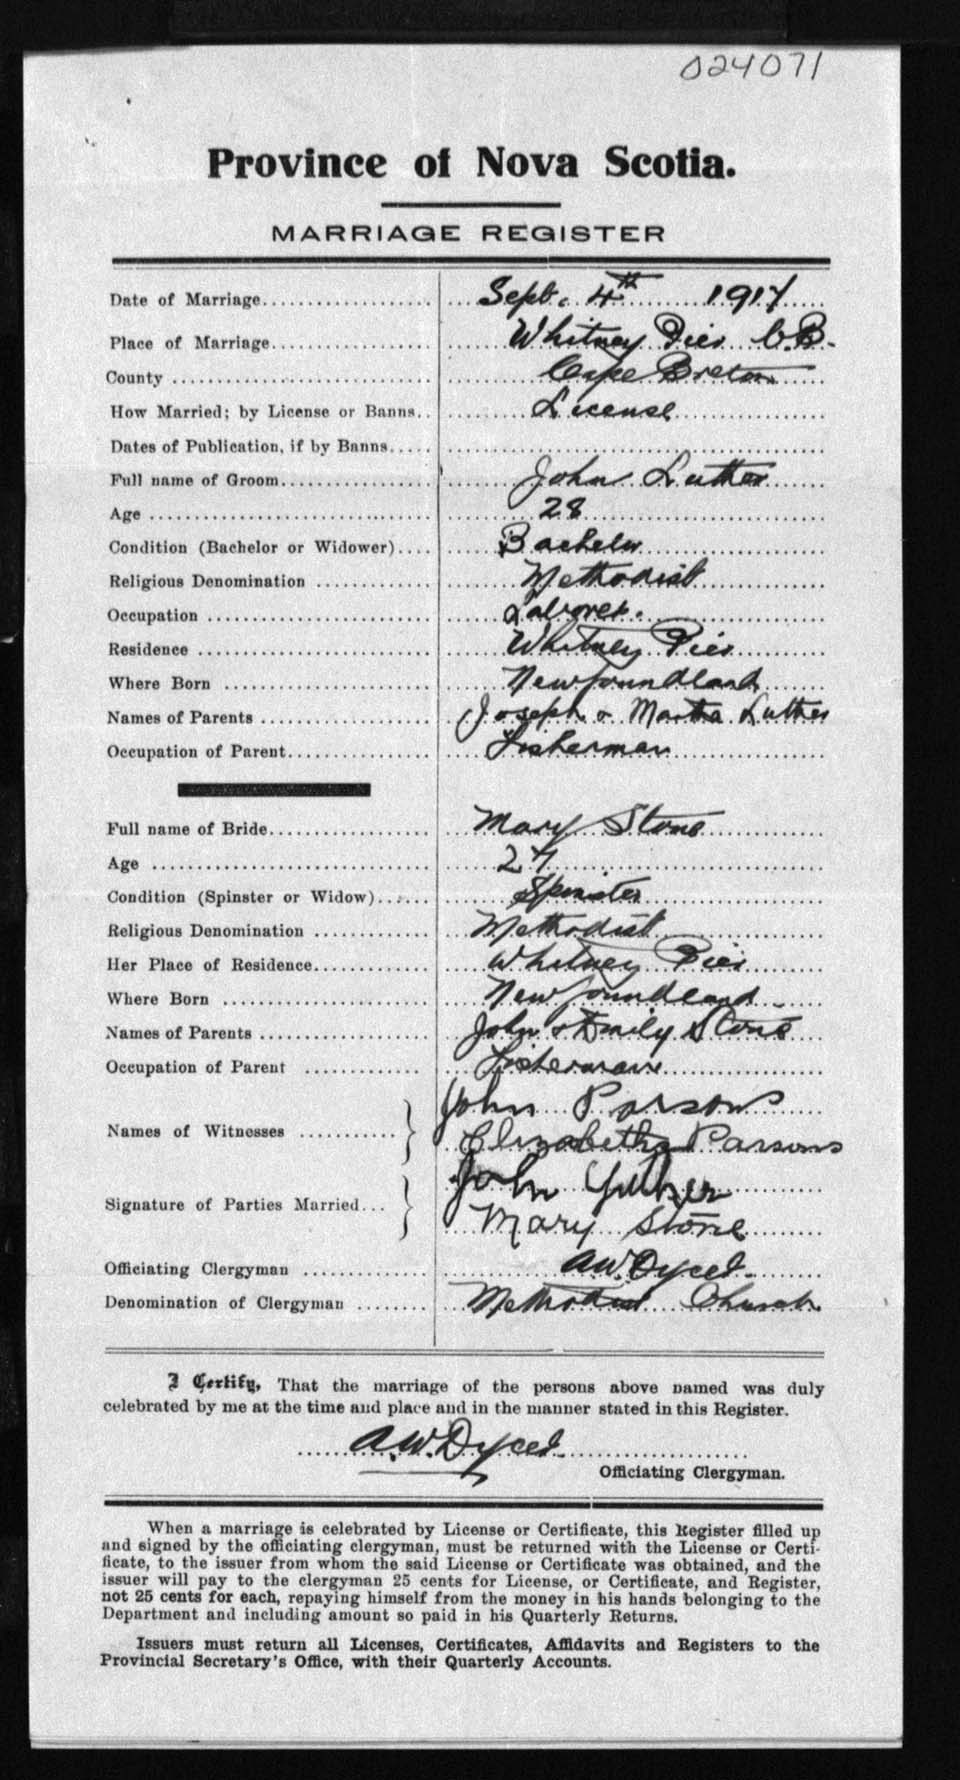 024071
Province of Nova Scotia.
MARRIAGE REGISTER
Date of Marriage Sept. 4th 1917
Place of Marriage Whitney Pier C.B.
County Cape Breton
How Married; by License or Banns License
Dates of Publication, if by Banns
Full name of Groom John Luther
Age 28
Condition (Bachelor or Widower) Bachelor
Religious Denomination Methodist
Occupation Laborer.
Residence Whitney Pier
Where Born Newfoundland
Names of Parents Joseph & Martha Luther
Occupation of Parent Fisherman
Full name of Bride Mary Stone
Age 27
Condition (Spinster or Widow) Spinster
Religious Denomination Methodist
Her Place of Residence Whitney Pier
Where Born Newfoundland
Names of Parents John & Emily Stone
Occupation of Parent Fisherman
John Parsons
Names of Witnesses Elizabeth Parsons
John
Signature of Parties Married Mary Stone
Officiating Clergyman A.W.
Denomination of Clergyman Methodist Church
I Certify, That the marriage of the persons above named was duly
celebrated by me at the time and place and in the manner stated in this Register.
A.W.
Officiating Clergyman.
When a marriage is celebrated by License or Certificate, this Register filled up
and signed by the officiating clergyman, must be returned with the License or Certi-
ficate, to the issuer from whom the said License or Certificate was obtained, and the
issuer will pay to the clergyman 25 cents for License, or Certificate, and Register,
not 25 cents for each, repaying himself from the money in his hands belonging to the
Department and including amount so paid in his Quarterly Returns.
Issuers must return all Licenses, Certificates, Affidavits and Registers to the
Provincial Secretary's Office, with their Quarterly Accounts.